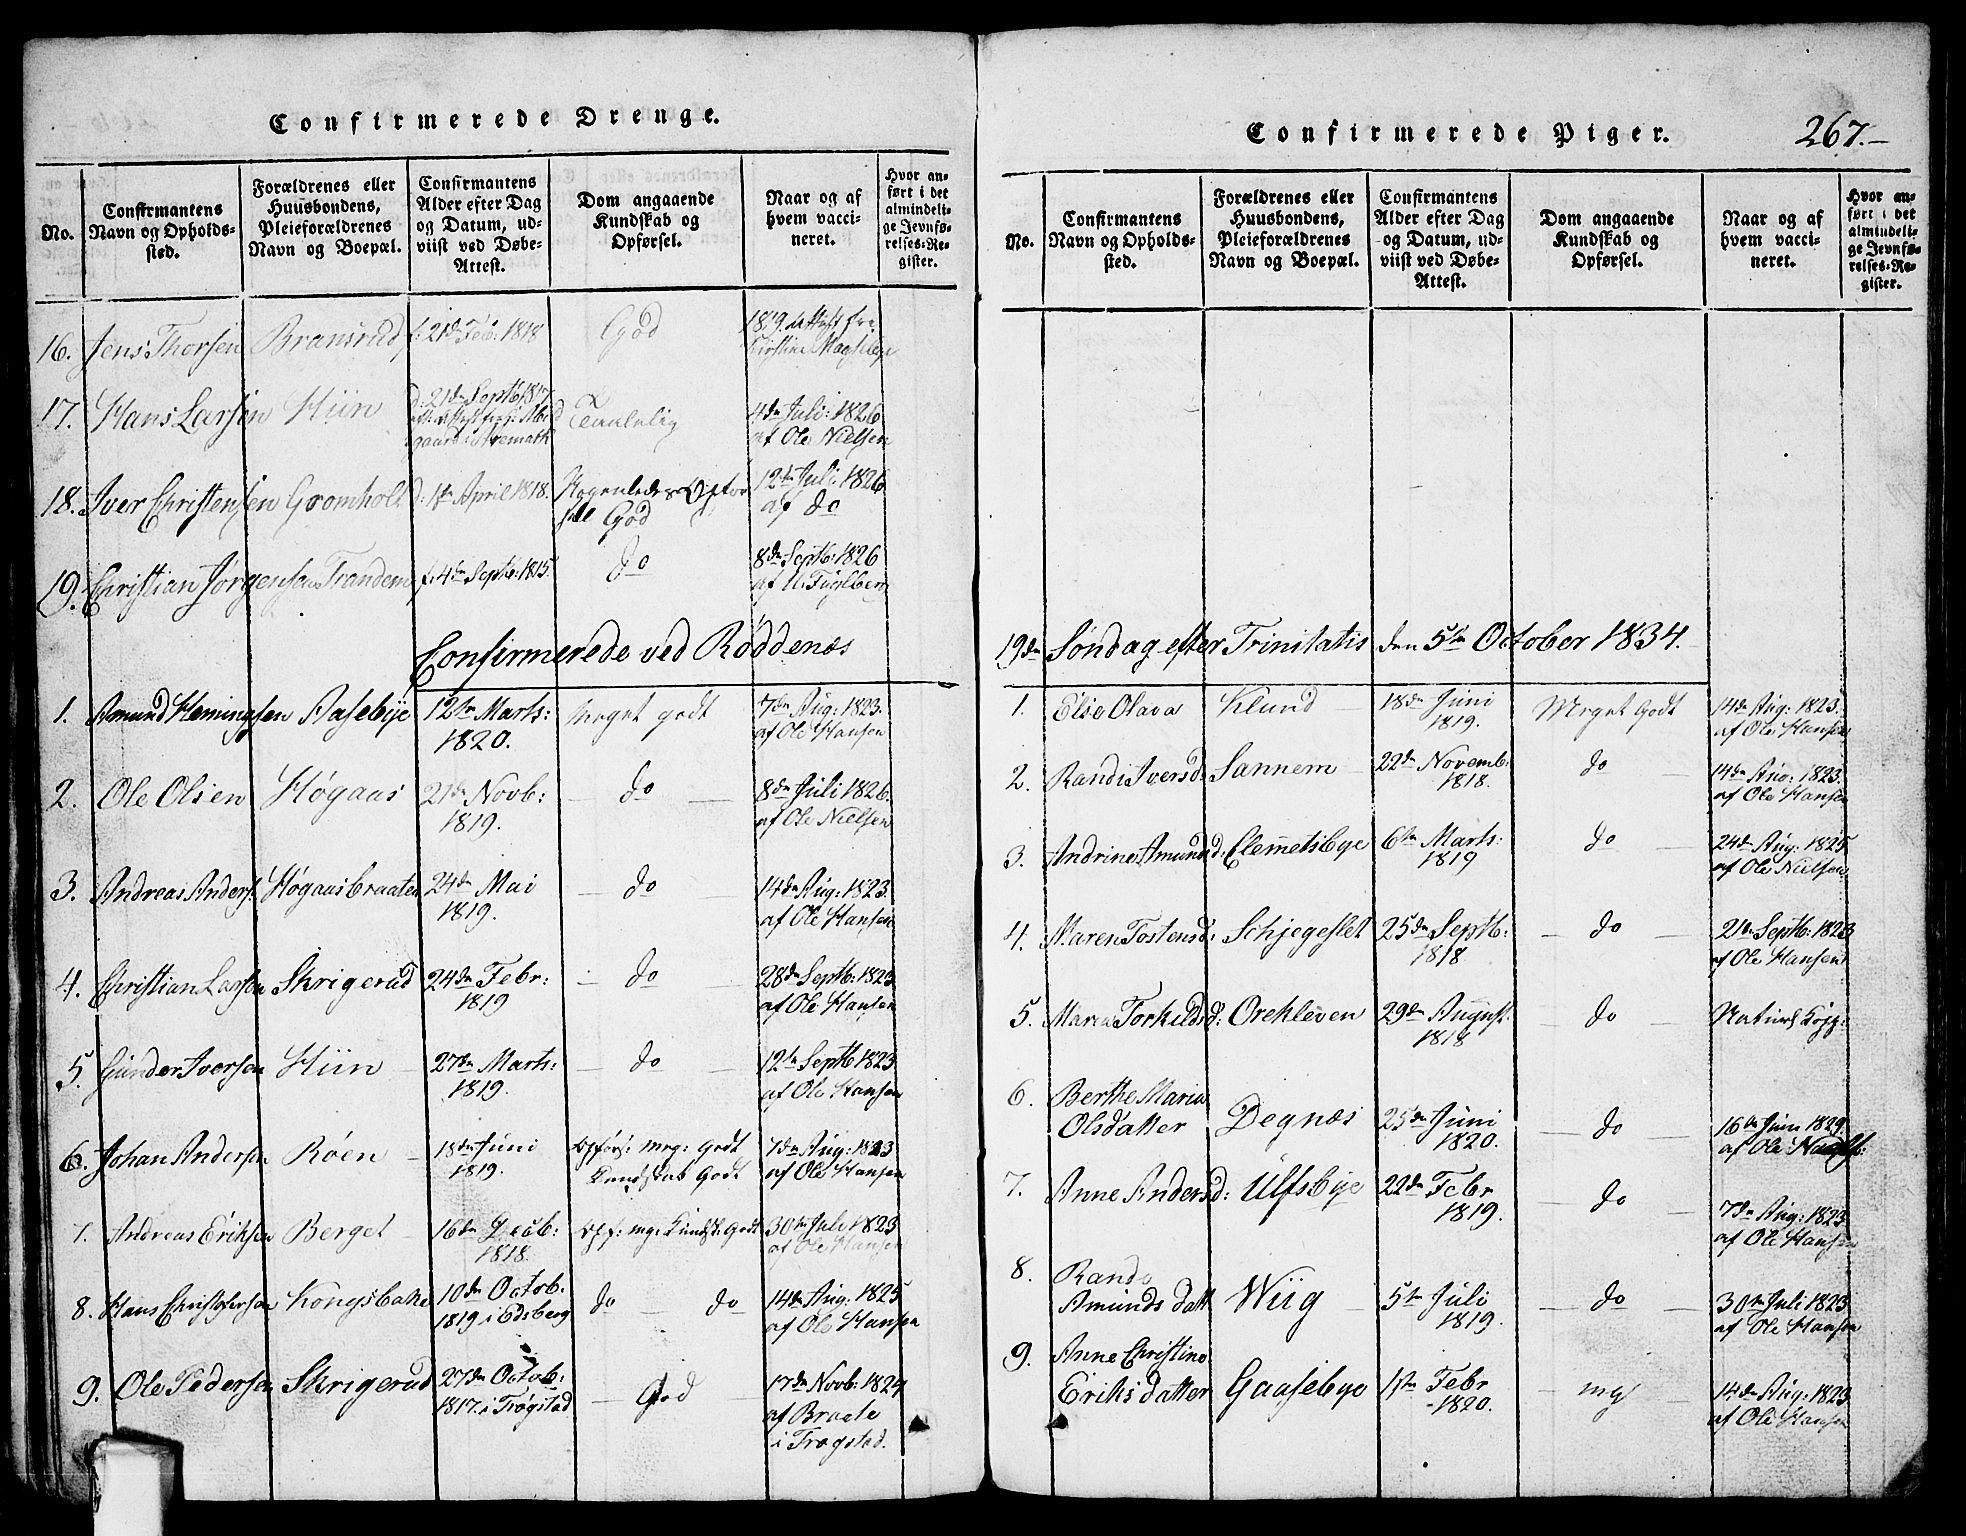 Confirmerede Drenge.
No.
Confirmantens Navn og Opholdssted.
Forældrenes eller Huusbondens, Pleieforældrenes Navn og Boepæl.
Confirmantens Alder efter Dag og Datum, udviist ved Døbe-Attest.
Dom angaaende Kundskab og Opførsel.
Naar og af hvem vaccineret.
Hvor anført i det almindelige Jevnførelses-Register.
16. Jens Thorsen Bransrud f: 21de Feb: 1818 God 1819. Attest fra
17. Hans Larsen Hiin d: 21de Septb 1817 Taalelig 4de Juli: 1826
af Ole Nielsen
18. Iver Christensen Gromholt d: 1ste April 1818. 12te Juli 1826
God af do
19. Christian Jørgensen Trandem f: 4de Septb: 1815. do 8de Septb: 1826
af U. Fuglberg
Confirmerede ved Røddenæs
1. Amund Hemingsen Aasebye 12te Marts: 1820. Meget godt 7de Aug: 1823.
af Ole Hansen
2. Ole Olsen Høgaas 21de Novb: 1819. do 8de Juli 1826.
af Ole Nielsen
3. Andreas Anders: Høgaasbraaten 24de Mai 1819. do 14de Aug: 1823
af Ole Hansen
4. Christian Larsen Skrigerud 24de Febr: 1819 do 28de Septb: 1823
af Ole Hansen
5. Gunder Iversen Hiin 27de Marts: 1819. do 12te Septb 1823
af Ole Hansen
6. Johan Andersen Røen 18de Juni 1819. Opførs: meg: Godt 7de Aug: 1823
Kundskab Godt af Ole Hansen
7. Andreas Eriksen Berget 16de Decb: 1818. Opf: mg: Kundsk: Godt 30te Juli 1823
af Ole Hansen
8. Hans Christofersen Kongsbakke 10de Octob: 1819 i Edsberg do do 14de Aug: 1825
af Ole Hansen
9. Ole Pedersen Skrigerud 27de Octob: 1817. i Trøgstad God 17de Novb: 1824
af Braate
i Trøgstad.
Confirmerede Piger.
267.
No.
Confirmantens Navn og Opholdssted.
Forældrenes eller Huusbondens, Pleieforældrenes Navn og Boepæl.
Confirmantens Alder efter Dag og Datum, udviist ved Døbe-Attest.
Dom angaaende Kundskab og Opførsel.
Naar og af hvem vaccineret.
Hvor anført i det almindelige Jevnførelses-Register.
19de Søndag efter Trinitatis den 5te October 1834.
1. Elise Olava Klund 18de Juni 1819. Meget Godt 14de Aug: 1823.
af Ole Hansen
2. Randi Iversd: Sannem 22de Novemb: 1818. do 14de Aug: 1823.
af Ole Hansen
3. Andrine Amundsd: Clemetsbye 6te Marts: 1819 do 24de Aug: 1825
af Ole Nielsen
4. Maren Tostensd: Schjegeslet 25de Septb: 1818 do 21de Septb: 1823
af Ole Hansen
5. Maria Torkildsd: Orekleven 29de August: 1818 do Naturl: Kopp:
6. Berthe Maria
Olsdatter Degnæs 25de Juni 1820. do 16de Juni 1829.
af Ole
7. Anne Andersd: Ulfsbye 22de Febr 1819. do 7de Aug: 1823
af Ole Hansen
8. Rande
Amunds datt Wiig 5te Juli 1819. do 30te Juli 1823
af Ole Hansen
9. Anne Christine
Eriksdatter Gaasebye 1ste Febr 1820. mg 14de Aug: 1823
af Ole Hansen